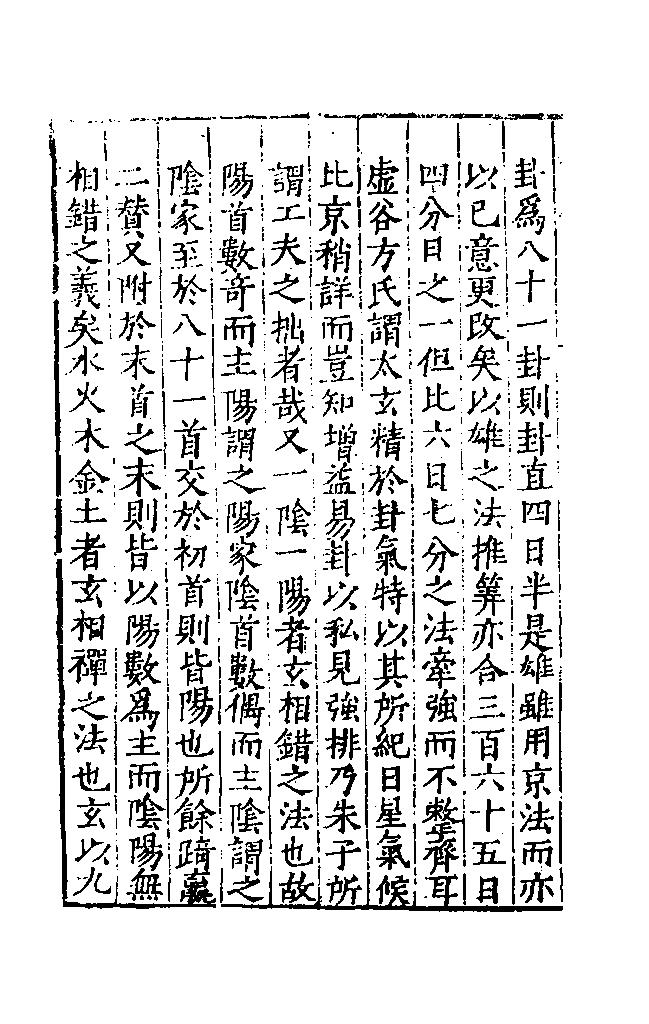 卦爲八十一卦則卦直四日半是雄雖用京法而亦
以已意更改矣以雄之法推筭亦合三百六十五日
四分日之一但比六日七分之法牽強而不整齊耳
虚谷方氏謂太玄精於卦氣特以其所紀日星氣候
比京稍詳而豈知增益易卦以私見強排乃朱子所
謂工夫之拙者哉又一陰一陽者玄相錯之法也故
陽首數竒而主陽謂之陽家陰首數偶而主陰謂之
陰家至於八十一首交於初首則皆陽也所餘踦嬴
二賛又附於末首之末則皆以陽數爲主而陰陽無
相錯之義矣水火木金土者玄相禪之法也玄以九